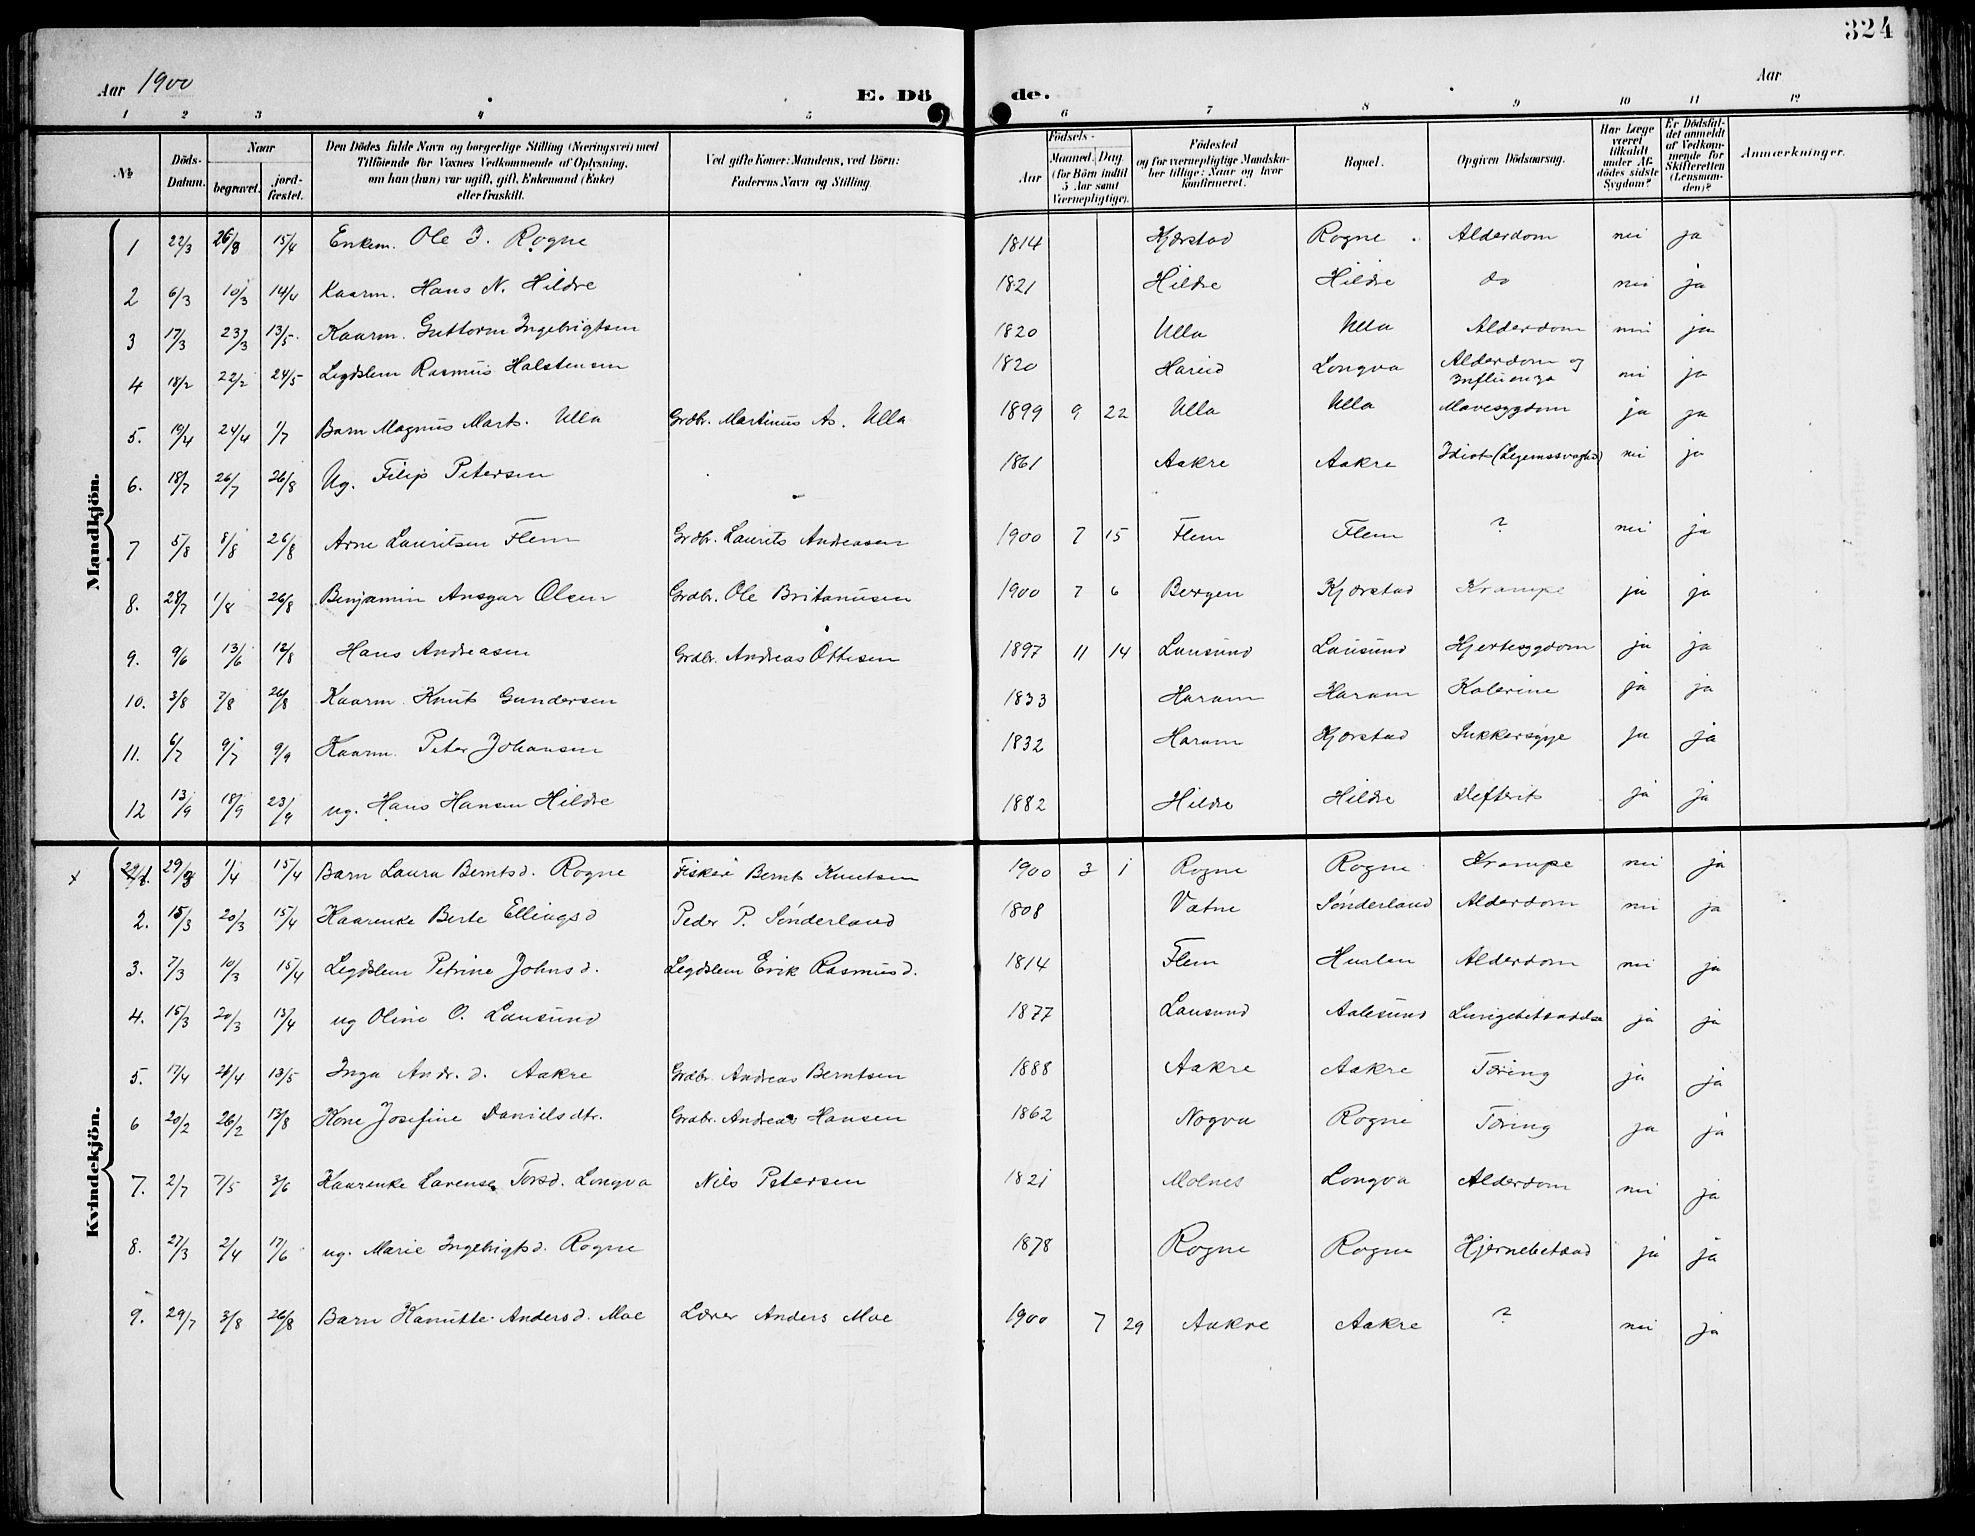 324
Aar 1900
E. Dö
de.
Aar
1 2 3 4 5 6 7 8 9 10 11 12
№
Döds-Datum.
Naar
begravet.
jord-fæstet.
Den Dödes fulde Navn og borgerlige Stilling (Næringsvei) med
Tilföiende for Voxnes Vedkommende af Oplysning,
om han (hun) var ugift, gift, Enkemand (Enke)
eller fraskilt.
Ved gifte Koner: Mandens, ved Börn:
Faderens Navn og Stilling.
Födsels-
Aar
Maaned. Dag.
(for Börn indtil
5 Aar samt
Værnepligtige).
Födested
og for værnepligtige Mandska-
ber tillige: Naar og hvor
konfirmeret.
Bopæl.
Opgiven Dödsaarsag.
Har Læge
været
tilkaldt
under Af-
dödes sidste
Sygdom?
Er Dödsfal-
det anmeldt
af Vedkom-
mende for
Skifteretten
(Lensman-
den)?
Anmærkninger.
Mandkjön.
1 22/3 26/3 15/4 Enkem. Ole I. Rogne 1814 Kjærstad Rogne Alderdom nei ja
2 6/3 10/3 14/4 Kaarm. Hans N. Hildre 1821 Hildre Hildre do nei ja
3 17/3 23/3 13/5 Kaarm. Guttorm Ingebrigtsen 1820 Ulla Ulla Alderdom nei ja
4 18/2 22/2 24/5 Legdslem Rasmus Halstensen 1820 Hareid Longva Alderdom og Influenza nei ja
5. 19/4 24/4 1/7 Barn Magnus Mart⁠s. Ulla Grdbr. Martinus As. Ulla 1899 9 22 Ulla Ulla Mavesygdom ja ja
6. 18/7 26/7 26/8 Ug. Filip Petersen 1861 Aakre Aakre Idiot (Legemssvaghed) nei ja
7 5/8 8/8 26/8 Arne Lauritsen Flem Grdbr. Laurits Andreasen 1900 7 15 Flem Flem ? nei ja
8. 28/7 1/8 26/8 Benjamin Ansgar Olsen Grdbr. Ole Britanusen 1900 7 6 Bergen Kjærstad Krampe ja ja
9. 9/6 13/6 12/8 Hans Andreasen Grdbr. Andreas Ottesen 1897 11 14 Lausund Lausund Hjertesygdom ja ja
10. 3/8 7/8 26/8 Kaarm. Knut Gundersen 1833 Haram Haram Kolerine ja ja
11. 6/7 9/7 9/9 Kaarm. Peter Johansen 1832 Haram Kjærstad Sukkersyge ja ja
12 13/9 18/9 23/9 ug. Hans Hansen Hildre 1882 Hildre Hildre Defterit ja ja
Kvindekjön.
x 29/3 1/4 15/4 Barn Laura Berntsd. Rogne Fisker Bernt Knutsen 1900 3 1 Rogne Rogne Krampe nei ja
2. 15/3 20/3 15/4 Kaarenke Berte Ellingsd Peder P. Sönderland 1808 Vatne Sönderland Alderdom nei ja
3. 7/3 10/3 15/4 Legdslem Petrine Johnsd. Legdslem Erik Rasmusd. 1814 Flem Hurlen Alderdom nei ja
4. 15/3 20/3 13/4 ug Oline O. Lausund 1877 Lausund Aalesund Lungebetændelse ja ja
5. 17/4 21/4 13/5 Inga Andr.d. Aakre Grdbr. Andreas Berntsen 1888 Aakre Aakre Tæring ja ja
6 20/2 26/2 12/8 Kone Josefine Danielsdtr. Grdbr. Andreas Hansen 1862 Nogva Rogne Tæring ja ja
7. 2/7 7/5 3/6 Kaarenke Larense Torsd. Longva Nils Petersen 1821 Molnes Longva Alderdom nei ja
8. 27/3 2/4 17/6 ug. Marie Ingebrigtsd. Rogne 1878 Rogne Rogne Hjernebetænd ja ja
9. 29/7 3/8 26/8 Barn Kanutte Andersd. Moe Lærer Anders Moe 1900 7 29 Aakre Aakre ? nei ja